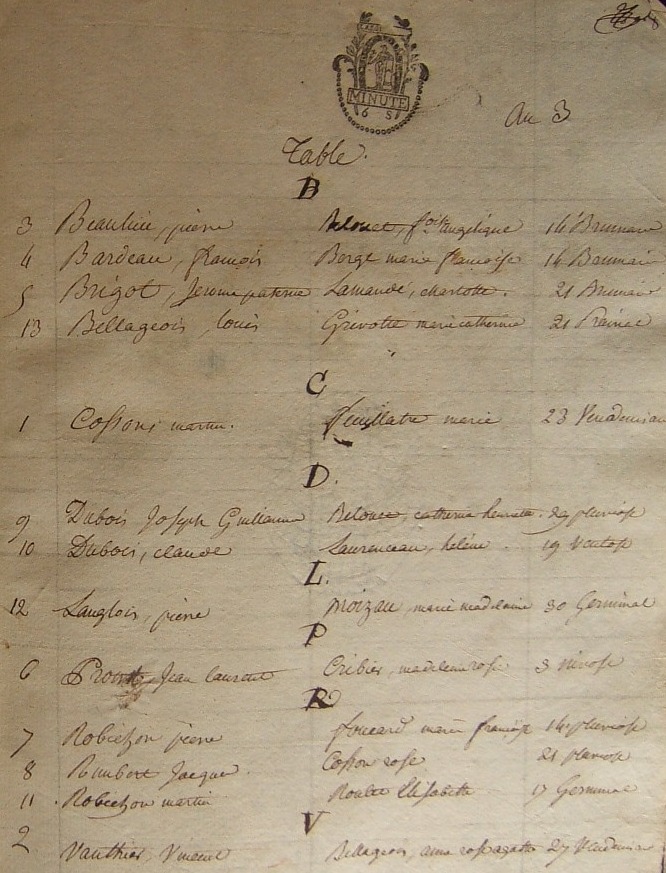 MINUTE
6 S
An 3
Table.
B
3 Beaulieu, pierre Belouet, foise angelique 14 Brumaire
4 Bardeau, francois Borge marie francoise 14 Brumaire
5 Brigot, Jerome paterne Lamandé, charlotte. 21 Brumaire
13 Bellageois louis Grivotte marie catherine 21 Prairial
C
1 Cossons martin. feuillatre marie 23 Vendemiaire
D.
9 Dubois Joseph Guillaume Belouet, catherine henriette. 29 pluviose
10 Dubois, claude Laurenceau, heléne. 19 Ventose
L.
12 Langlois, pierre moizau, marie madelaine 30 Germinal
P
6 Proust, Jean laurent Cribier, madeleine rose 3 nivose
R
7 Robichon pierre foucard marie françoise 14 pluviose
8 Rimbert Jacques. Cosson rose 21 pluviose
11 Robichon martin Roulet Elisabette 17 Germinal
V
2 Vauthier, Vincent Bellageois, anne rose agatte 27 Vendemiaire